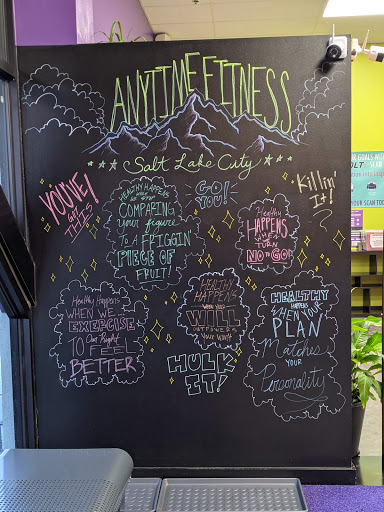 ANYTIME FITNESS
Salt Lake City
YOU'VE
GOT
THIS
HEALTHY HAPPENS
COMPARING
your figure
TO A FRIGGIN'
PIECE OF
FRUIT!
GO
YOU!
Healthy
HAPPENS
WHEN WE
TURN
NO TO GO!
Killin'
It!
Healthy Happens
WHEN WE
EXERCISE
Our Right
TO FEEL
BETTER
HEALTHY
HAPPENS
WHEN YOUR
WILL
OUTPOWERS
YOUR Won't
HULK
IT!
HEALTHY
HAPPENS
WHEN YOUR
PLAN
Matches
YOUR
Personality
R GOALS
OLT
SCAN
YOUR SCAN TOD